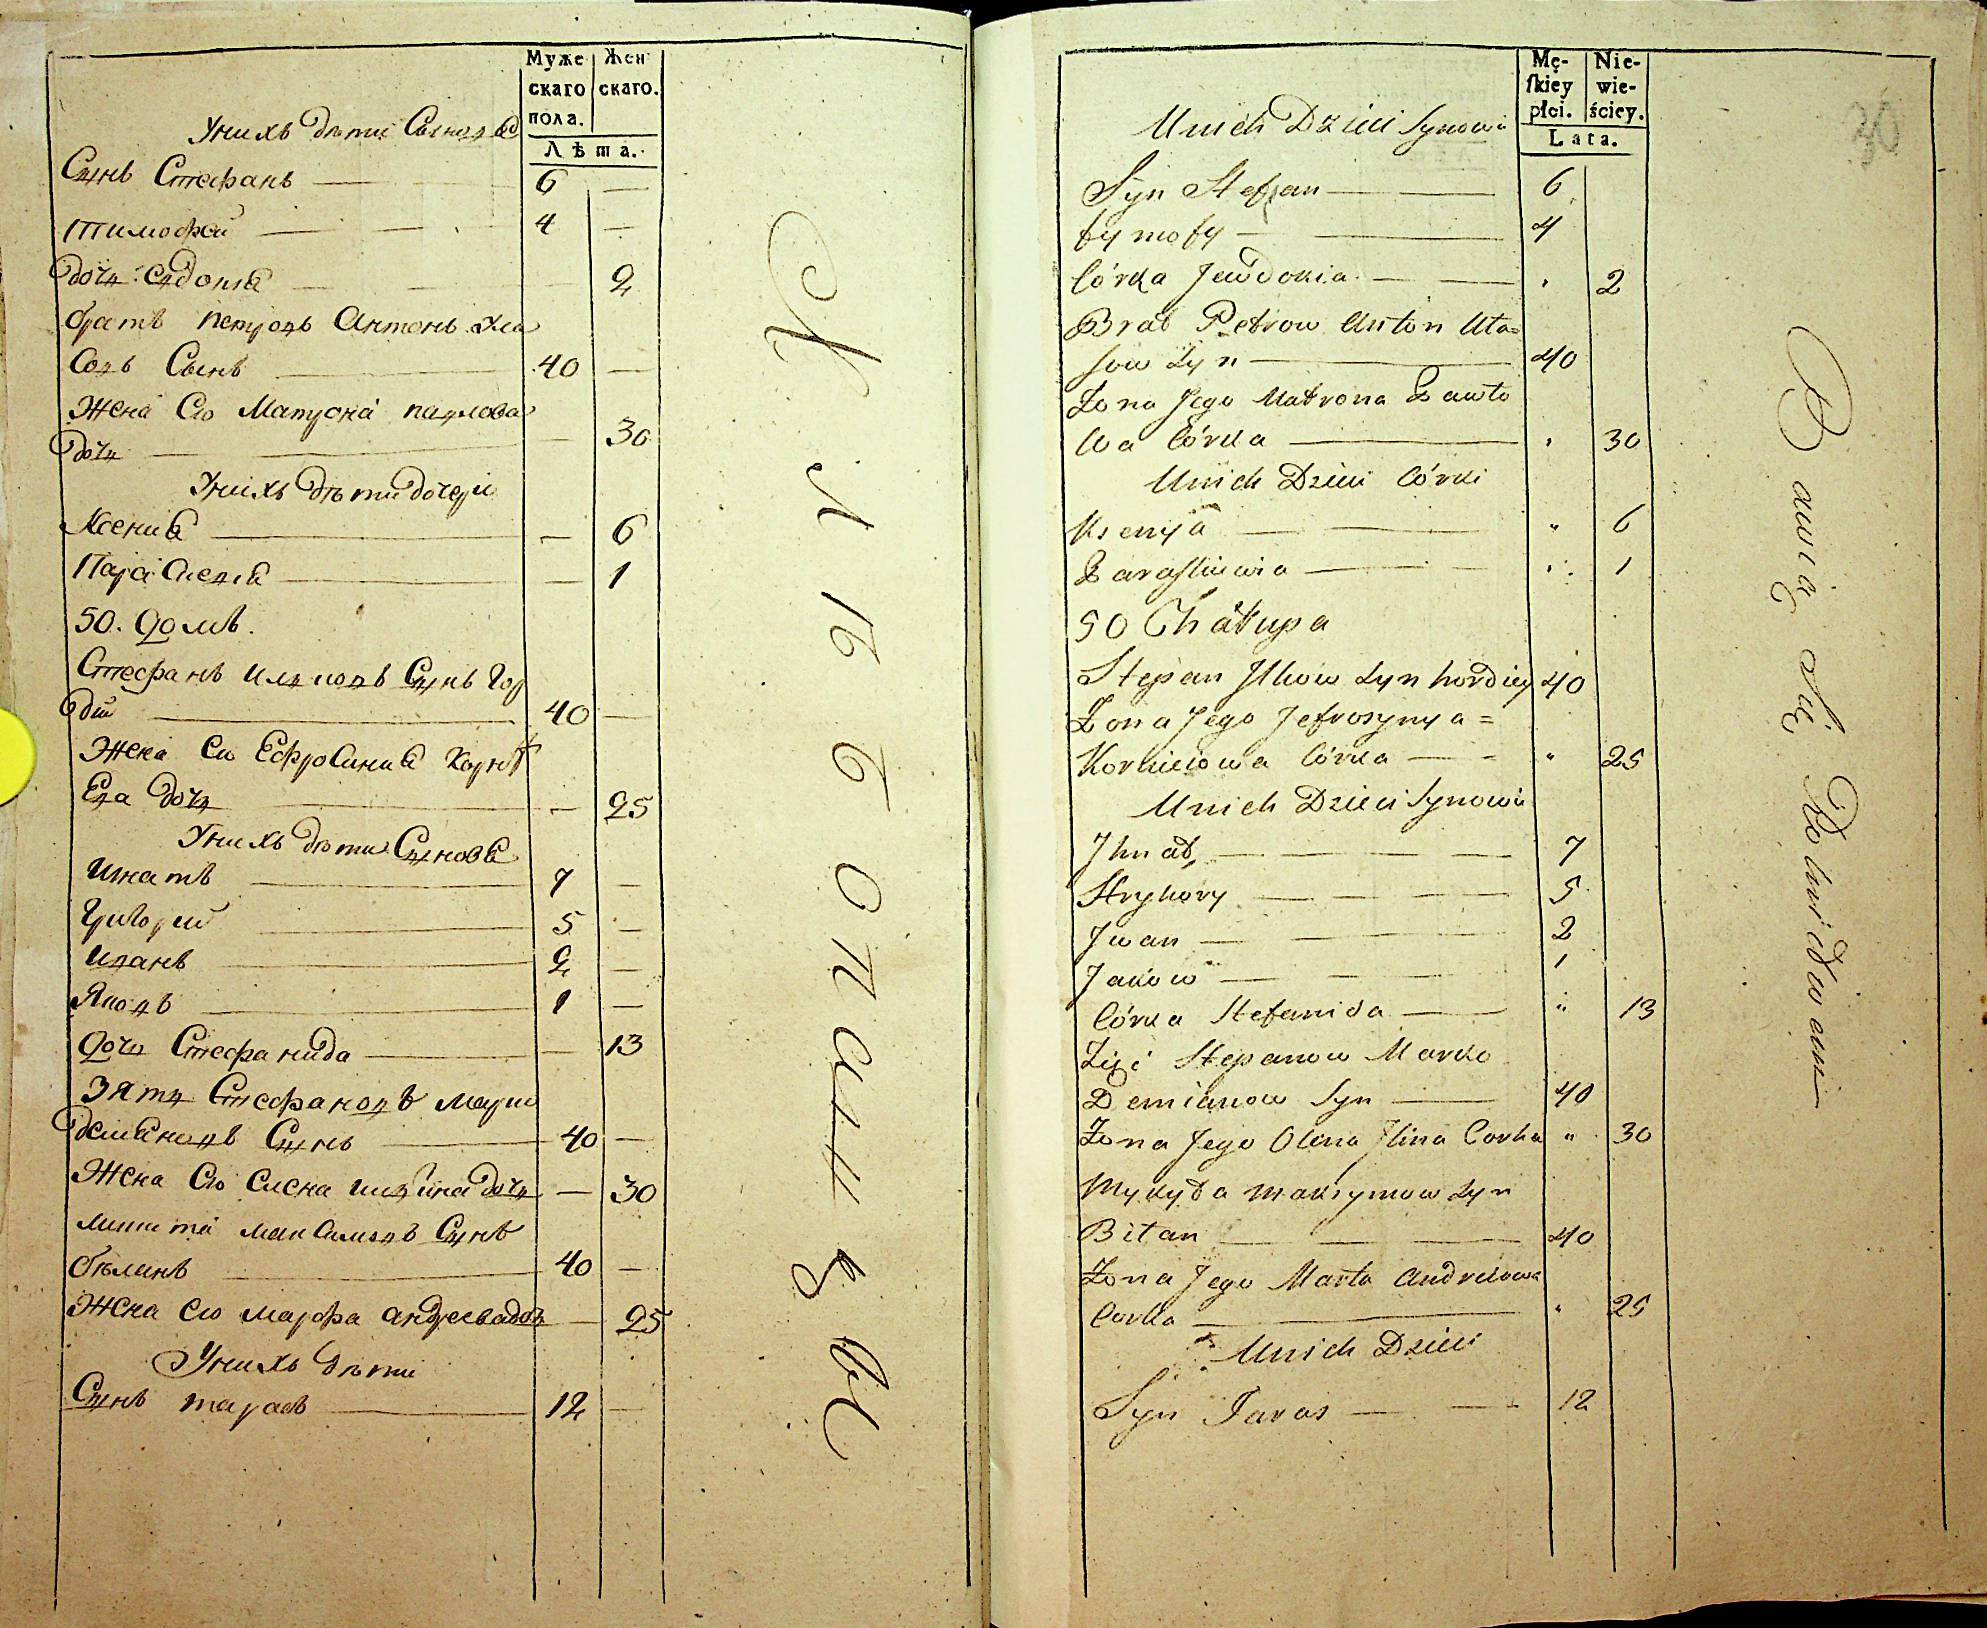 Муже
скаго
пола.
Жен
скаго.
Лѣта.
Унихъ дѣти Сыновья
Сынъ Стефанъ — 6 —
Тимофей — 4 —
дочь Евдокия — 2
братъ Петровъ Антонъ Ула
совъ Сынъ — 40 —
Жена Его Матрона Павлова
дочь — 30
Унихъ дѣти дочери
Ксения — 6
Параскевия — 1
50. домъ.
Стефанъ Ильковъ Сынъ Гор
дий — 40 —
Жена Его Ефросиния Корнѣ
Ева дочь — 25
Унихъ дѣти Сыновья
Игнатъ — 7 —
Григорий — 5 —
Иванъ — 2 —
Яковъ — 1 —
Дочь Стефанида — 13
Зять Стефановъ Марко
демяновъ Сынъ — 40 —
Жена Его Елена Ильина дочь — 30
Микита Максимовъ Сынъ
Бѣланъ — 40 —
Жена Его Марфа Андреева дочь — 25
Унихъ дѣти
Сынъ Тарасъ — 12 —
Хлѣбопашцы
Mę-
skiey
płci.
Nie-
wie-
ściey.
Lata.
30
Unich Dzieci Synowie
Syn Stefan — 6
Tymofy — 4
Córka Jewdokia — " 2
Brat Petrow Anton Uła=
sow Syn — 40
Żona Jego Matrona Pawło
wa Córka — " 30
Unich Dzieci Córki
Ksenya — " 6
Paraskiewia — " 1
50 Chałupa
Stepan Ilkow Syn Hordiey 40
Żona Jego Jefrosynya=
Korniejowa Córka — " 25
Unich Dzieci Synowie
Ihnat — 7
Hryhory — 5
Jwan — 2
Jakow — 1
Córka Stefanida — " 13
Zięć Stepanow Marko
Demianow Syn — 40
Żona Jego Olena Ilina Corka " 30
Mykyta Maksymow Syn
Bilan — 40
Żona Jego Marta Andrejowa
Corka — " 25
Unich Dzieci
Syn Taras — 12
Bawią się Rolnictwem